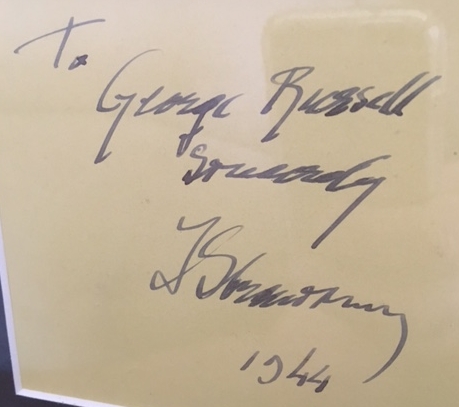 To
George Russell
Sincerely
I Strawinsky
1944